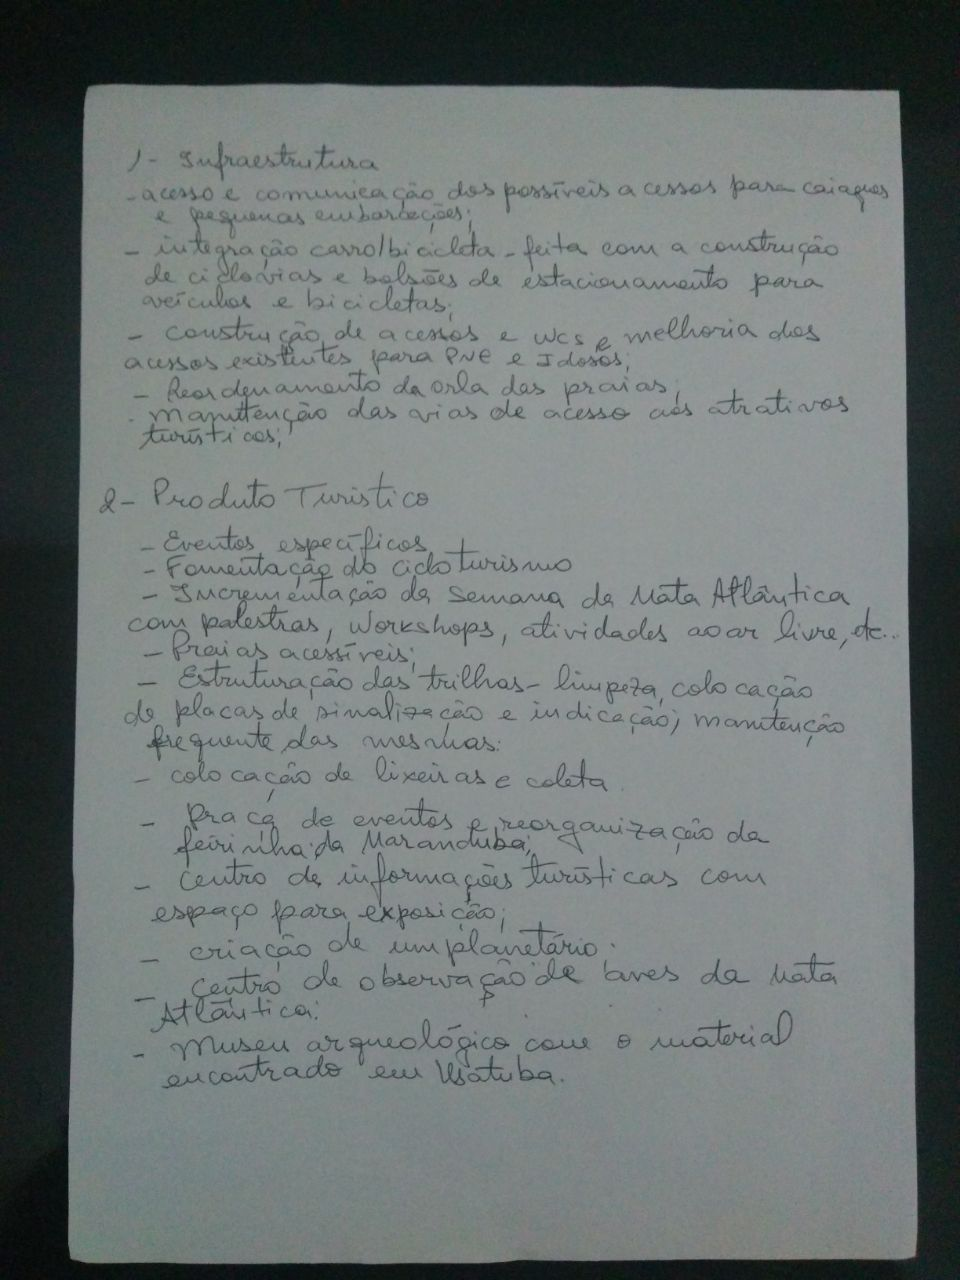 1- Infraestrutura
- acesso e comunicação dos possíveis acessos para caiaques
e pequenas embarcações;
- integração carro/bicicleta - feita com a construção
de ciclovias e bolsões de estacionamento para
veículos e bicicletas;
- construção de acessos e wcs e melhoria dos
acessos existentes para PNE e Idosos;
- Reordenamento da orla das praias;
- Manuttenção das vias de acesso aos atrativos
turísticos;
2- Produto Turistico
- Eventos específicos
- Fomentação do cicloturismo
- Incrementação da Semana da Mata Atlântica
com palestras, workshops, atividades ao ar livre, etc..
- Praias acessíveis;
- Estruturação das trilhas - limpeza, colocação
de placas de sinalização e indicação; manutenção
frequente das mesmas.
- colocação de lixeiras e coleta.
- Praça de eventos e reorganização da
feirinha da Maranduba;
- centro de informações turísticas com
espaço para exposição;
- criação de um planetário.
- centro de observação de aves da Mata
Atlântica.
- Museu arqueológico com o material
encontrado em Ubatuba.